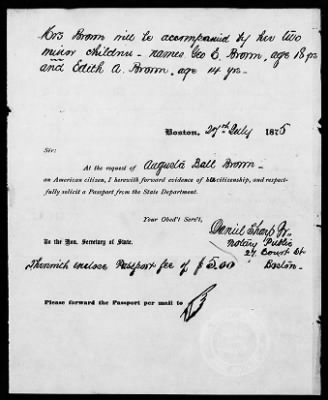 Mrs Brown will be accompanied by her two
minor children - names Geo E. Brown, age 18 yrs
and Edith A. Brown, age 14 yrs.
Boston, 27th July 1875
Sir:
At the request of Augusta Ball Brown
an American citizen, I herewith forward evidence of her citizenship, and respect-
fully solicit a Passport from the State Department.
Your Obed't Serv't,
Daniel Sharp Jr.
Notary Public
To the Hon. Secretary of State.
27 Court St
Boston.
I herewith enclose Passport fee of $5.00
Please forward the Passport per mail to